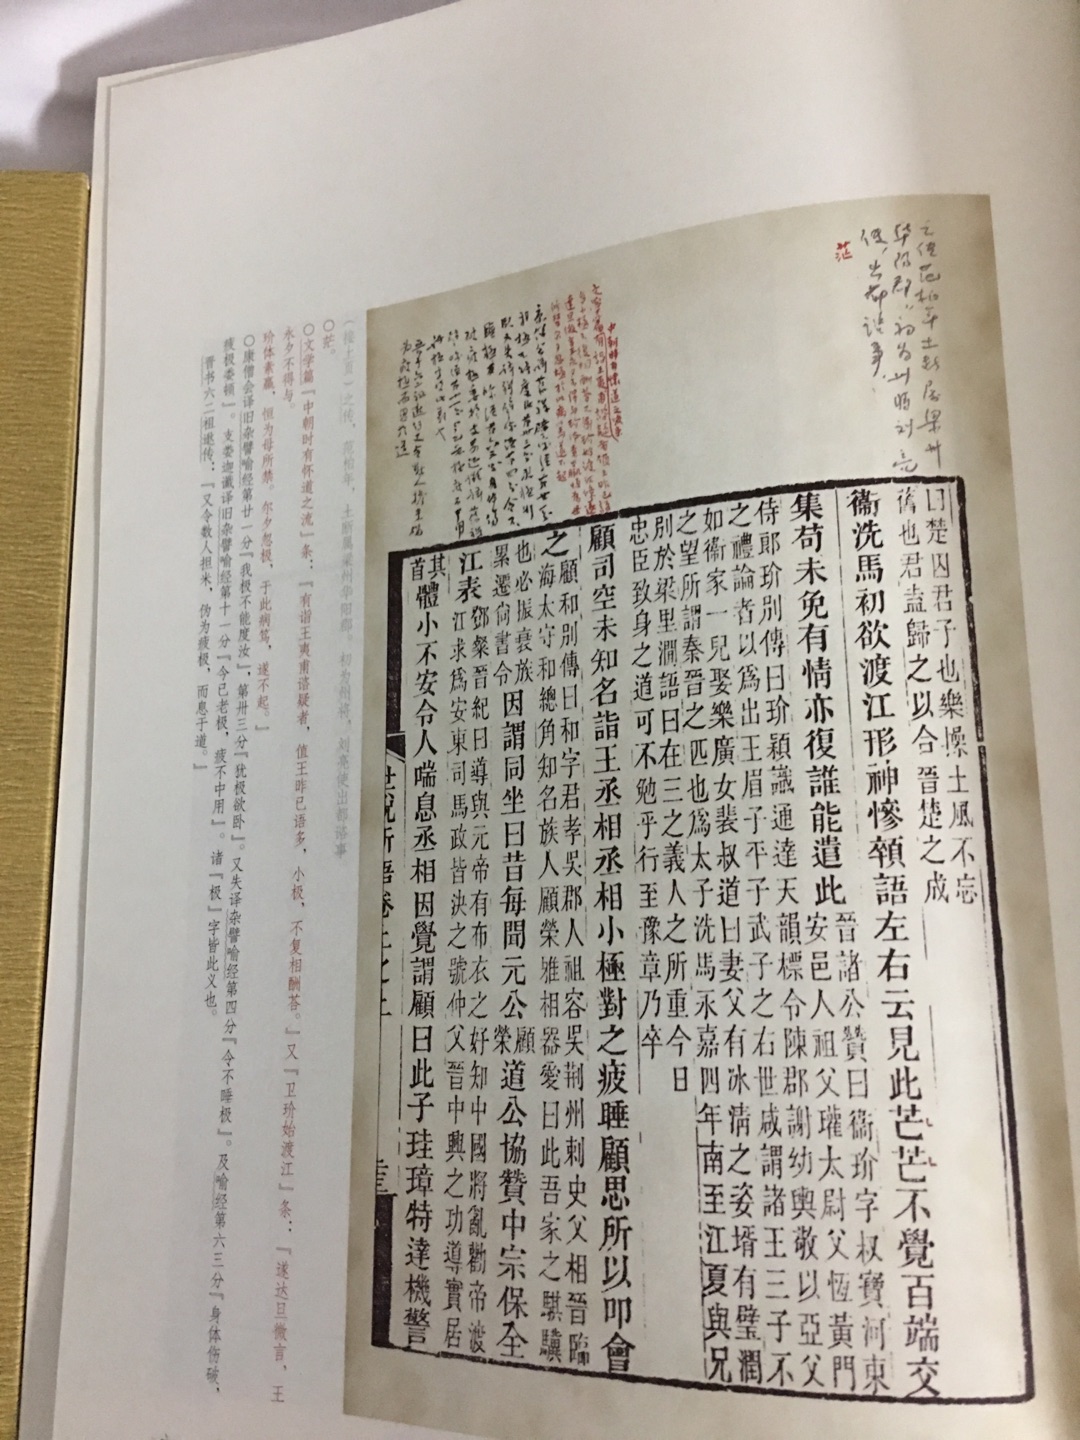 之使范柏年土断属梁州
华阳郡,初为州将刘亮
使出都谘事.
茫
曰楚囚君子也樂操土風不忘
舊也君盍歸之以合晉楚之成
衞洗馬初欲渡江形神慘顇語左右云見此芒芒不覺百端交
集苟未免有情亦復誰能遣此 晉諸公贊曰衞玠字叔寶河東
安邑人祖父瓘太尉父恆黃門
侍郎玠別傳曰玠穎識通達天韻標令陳郡謝幼輿敬以亞父
之禮論者以爲出王眉子平子武子之右世咸謂諸王三子不
如衞家一兒娶樂廣女裴叔道曰妻父有冰淸之姿壻有璧潤
之望所謂秦晉之匹也爲太子洗馬永嘉四年南至江夏與兄
別於梁里澗語曰在三之義人之所重今日
忠臣致身之道可不勉乎行至豫章乃卒
顧司空未知名詣王丞相丞相小極對之疲睡顧思所以叩會
之 顧和別傳曰和字君孝吳郡人祖容吳荆州刺史父相晉臨
海太守和總角知名族人顧榮雅相器愛曰此吾家之騏驥
也必振衰族
累遷尙書令 因謂同坐曰昔每聞元公 顧榮 道公協贊中宗保全
江表 鄧粲晉紀曰導與元帝有布衣之好知中國將亂勸帝渡
江求爲安東司馬政皆決之號仲父晉中興之功導實居
其首 體小不安令人喘息丞相因覺謂顧曰此子珪璋特達機警
世說新語卷上之上
(接上页)之传,范柏年,土断属梁州华阳郡。初为州将,刘亮使出都谘事
〇茫。
〇文学篇『中朝时有怀道之流』条:『有诣王夷甫谘疑者,值王昨已语多,小极,不复相酬荅。』又『卫玠始渡江』条:『遂达旦微言,王
永夕不得与。
玠体素羸,恒为母所禁。尔夕忽极,于此病笃,遂不起。』
〇康僧会译旧杂譬喻经第廿一分『我极不能度汝』,第卅三分『犹极欲卧』。又失译杂譬喻经第四分『令不唾极』。及喻经第六三分『身体伤破,
疲极委顿』。支娄迦谶译旧杂譬喻经第十一分『今已老极,疲不中用』。诸『极』字皆此义也。
晋书六二祖逖传:『又令数人担米,伪为疲极,而息于道。』